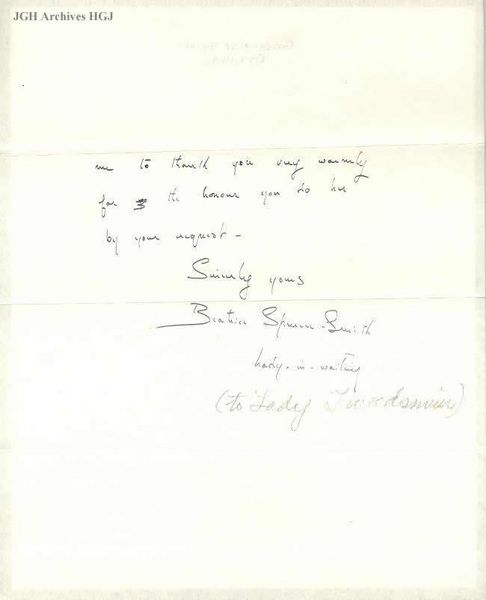 JGH Archives HGJ
me to thank you very warmly
for the honour you do her
by your request -
Sincerely yours
Beatrice Spencer-Smith
Lady-in-waiting
(to Lady Tweedsmuir)